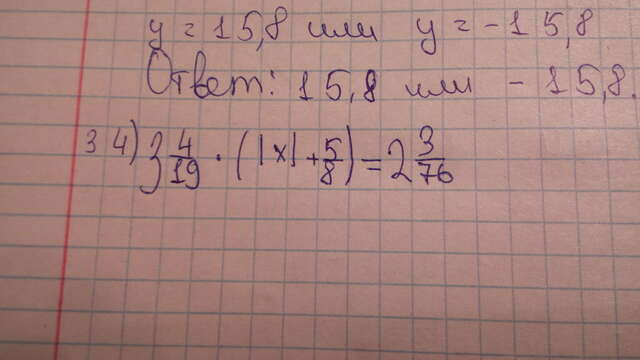 y = 15,8 или y = -15,8
Ответ: 15,8 или -15,8.
3 4) 3 4/19 · (|x| + 5/8) = 2 3/76